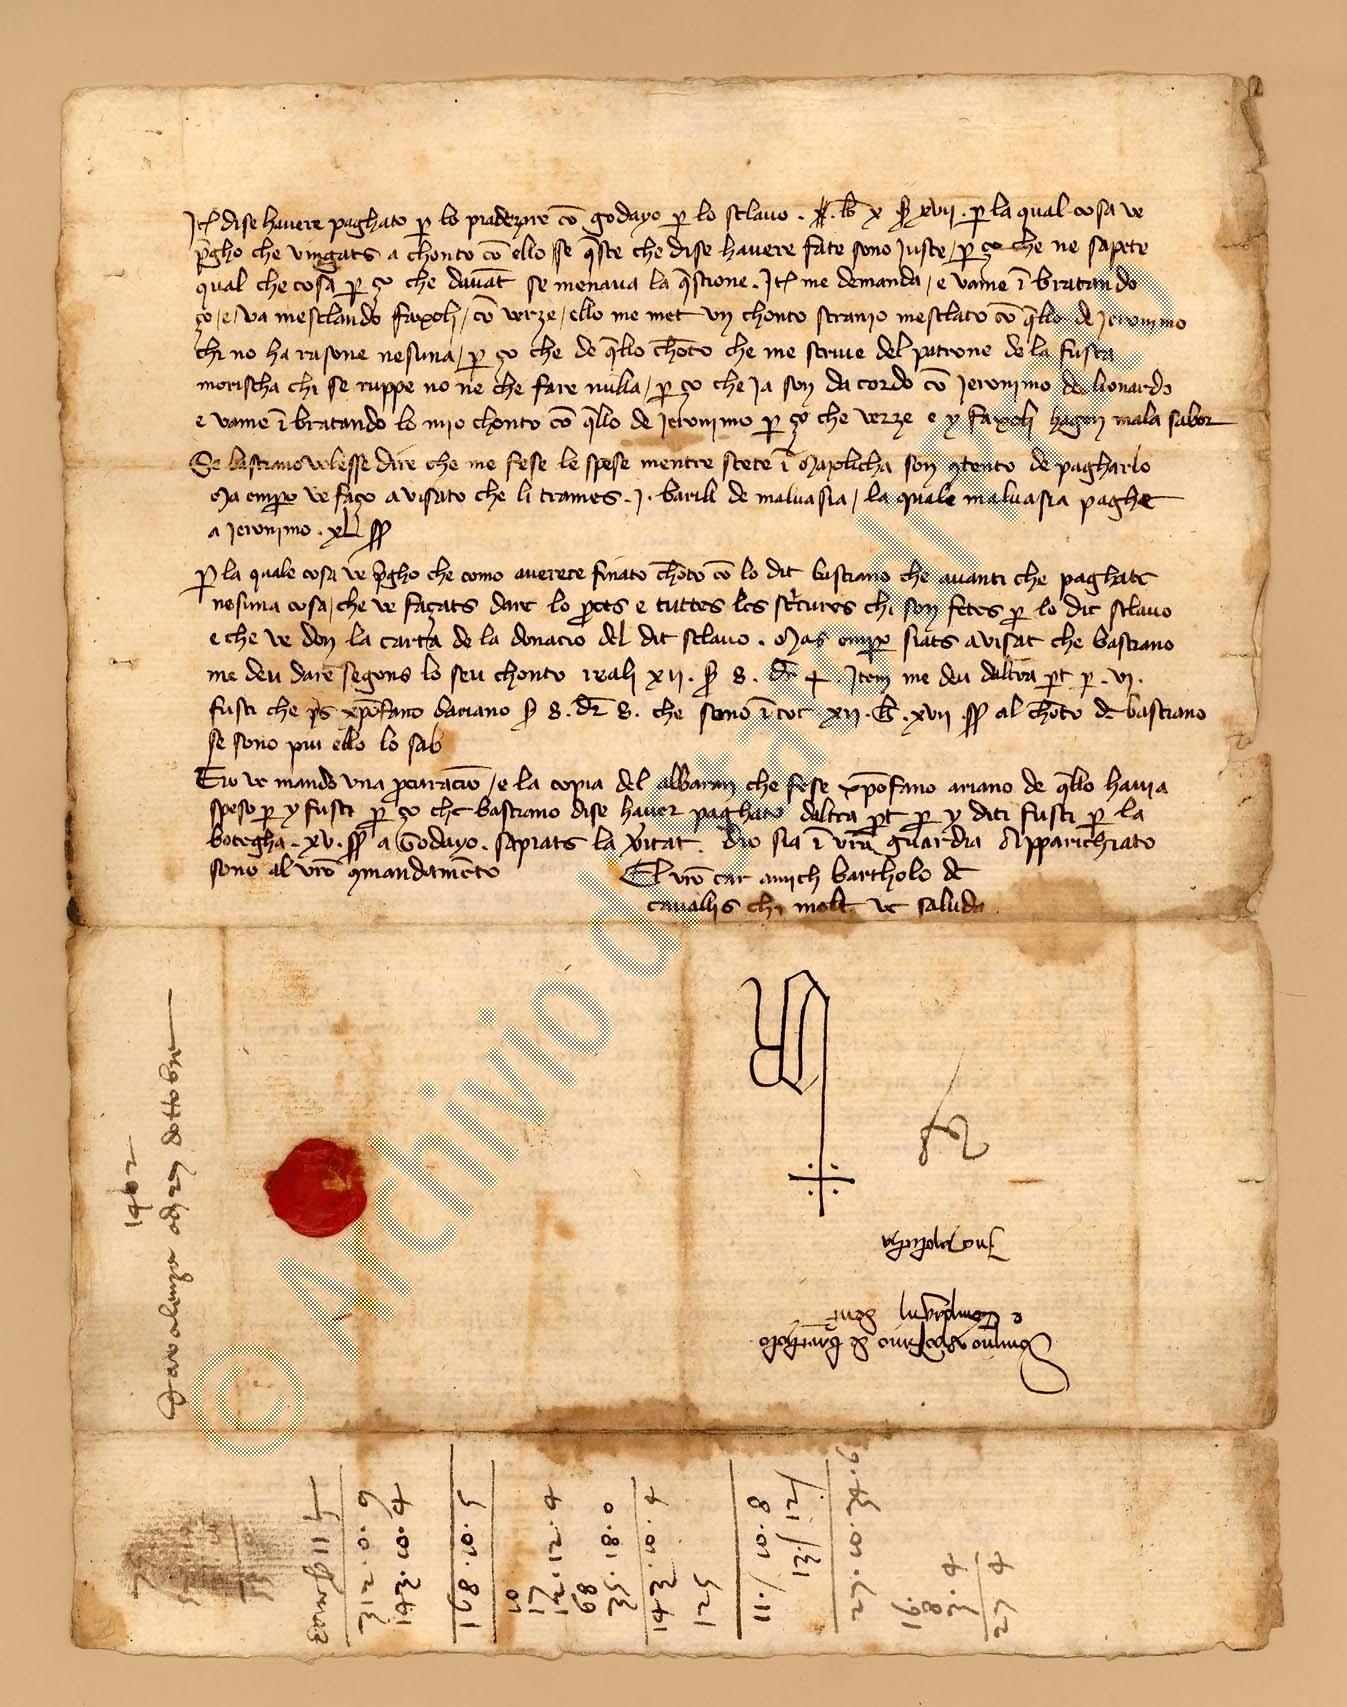 Jt dise havere paghato p lo piadezare co godayo p lo sclavo . lb x s xvii . p la qual cosa ve
pgho che vingats a chonto co ello se qste che dise havere fate sono juste / p ço che ne sapete
qual che cosa p ço che davat se menava la qstione . Jt me demanda / e vame i bratando
ço / e / va mesclando faxoli / co verze / ello me met un chonto stranio mesclato co qllo de jeronimo
chi no ha rasone nesuna / p ço che de qllo choto che me scrive del patrone de la fusta
morischa chi se ruppe no ne che fare nulla / p ço che ja son da cordo co jeronimo de lionardo
e vame i bratando lo mio chonto co qllo de jeronimo p ço che verze e y faxoli hagen mala sabor
Se bastiano volesse dire che me fese le spese mentre stete i maiolicha son 9tento de pagharlo
Ma empo ve faço avisato che li trames . j . barill de malvasia / la quale malvasia paghe
a jeronimo . xl
P la quale cosa ve pgho che como averete finato choto co lo dit bastiano che avanti che paghate
nesuna cosa / che ve façats dare lo pces e tuttes les scritures chi son fetes p lo dit sclavo
e che ve don la carta de la donacio del dit sclavo . Mas empo siats avisat che bastiano
me deu dare segons lo seu chonto reali xii . s 8 . dr 4 . Jtem me deu daltra pt p . vi .
fusti che ps xpofano dariano s 8 . dr 8 . che sono i tot xii . lb . xvii . al choto de bastiano
se sono piu ello lo sab
Ero ve mando una pcuracio / e la copia del albaran che fese xpofano ariano de qllo havia
speso p y fusti p ço che bastiano dise haver paghato daltra pt p y diti fusti p la
botegha . xv . a Godayo . sapiats la vitat . dio sia i vra guardia Apparichiato
sono al vro 9mandameto
El vro car amich bartholo de
cavallis chi molt ve saluda
Domino e bartholo
e Compagni
Jn maiolicha
1402
da valenza a di dottobre
312.0.6
143.10.4
169.8.5
17
12.12.4
68
35.18.0
143.10.4
125
11/.10.8
27.10.
27 4